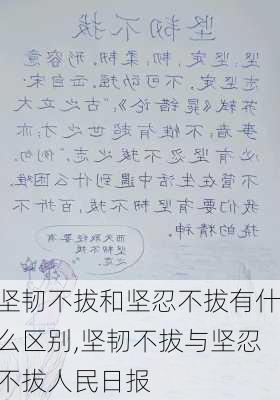 坚韧不拔
坚：坚定，韧：柔韧。形容意
志坚定，不可动摇。出自宋·
苏轼《晁错论》：“古之立大
事者，不惟有超世之才，亦
必有坚忍不拔之志。”例句：
不管在生活中遇到什么困难，
我们要有坚韧不拔、百折不
挠的精神。
西天取经要有
坚韧不拔
之志
坚韧不拔和坚忍不拔有什
么区别,坚韧不拔与坚忍
不拔人民日报